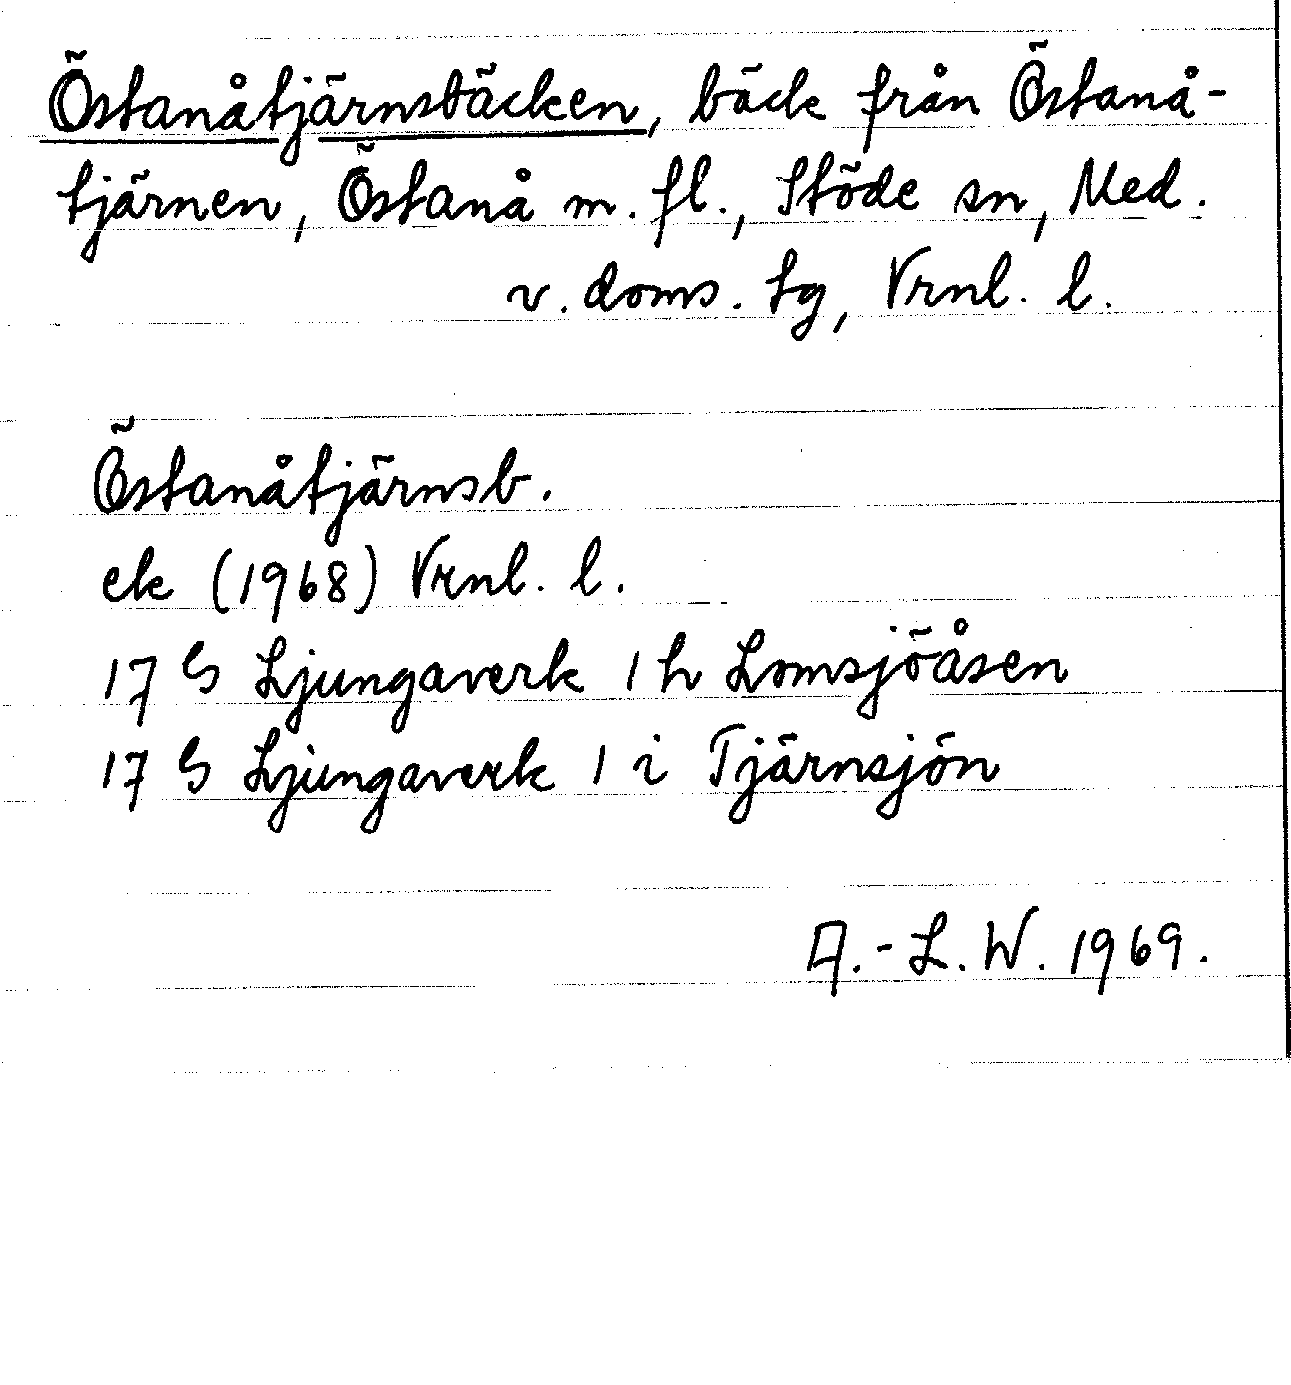 Östanåtjärnsbäcken, bäck från Östanå-
tjärnen, Östanå m. fl., Stöde sn, Med.
v. doms. tg, Vrnl. l.
Östanåtjärnsb.
ek (1968) Vrnl. l.
17 G Ljungaverk 1 h Lomsjöåsen
17 G Ljungaverk 1 i Tjärnsjön
A.-L. W. 1969.